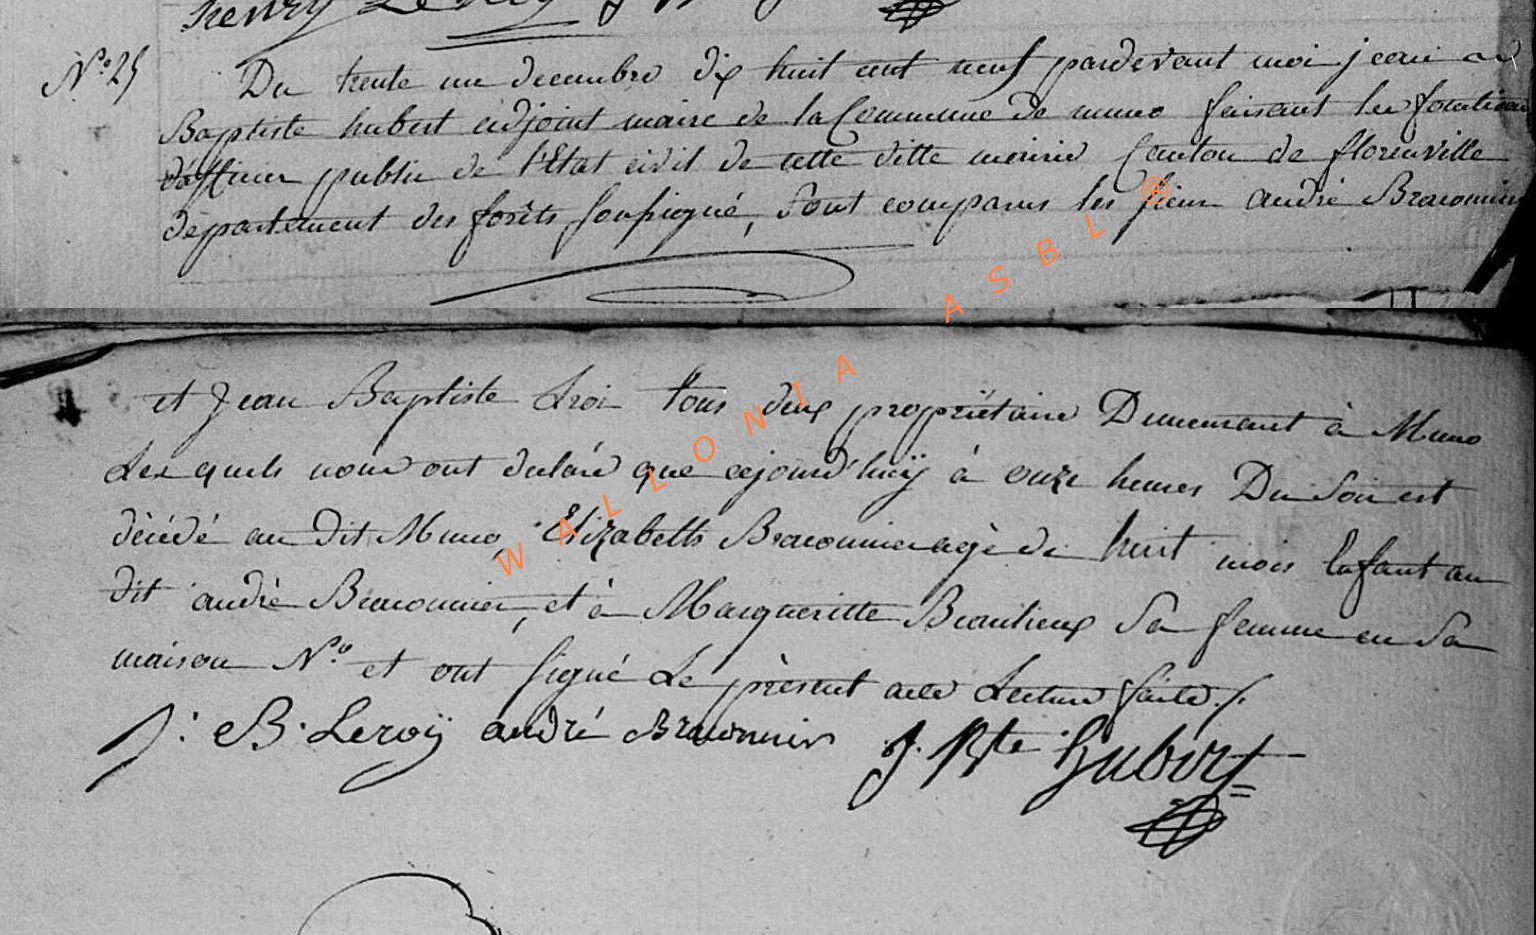 henry Leroy
N.° 25
Du trente un decembre dix huit cent neuf pardevant moi jean
Baptiste hubert adjoint maire de la Commune de muno faisant les fonctions
d'officier public de l'Etat civil de cette ditte mairie Canton de florenville
département des forêts soussigné, sont comparus les sieur andré Braconnier
et Jean Baptiste Leroi tous deux propriétaire Demeurant à Muno
Lesquels nous ont declaré que cejourd'huÿ à onze heures Du soir est
dècédé au Dit Muno, Elizabeth Braconnier agè de huit mois Enfant au
dit andrè Braconnier, et à Margueritte Beaulieux Sa femme en Sa
maison N.° et ont signé Le prèsent acte Lecture faite ./.
J: B. Leroÿ andré Braconnier J. Bte Hubert
WALLONIA ASBL ®